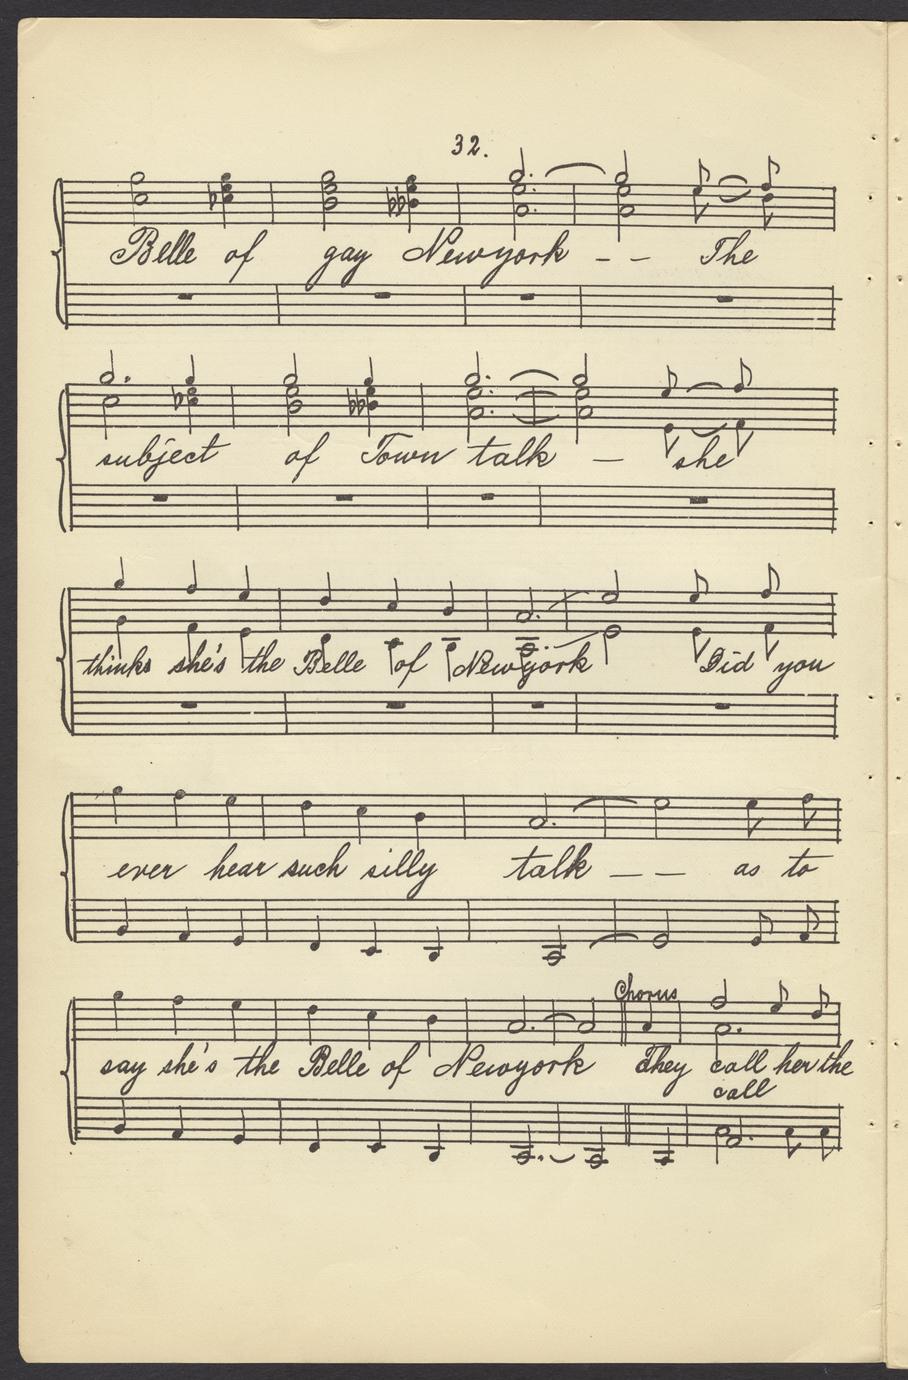 32.
Belle of gay Newyork - - The
subject of Town talk - she
thinks she's the Belle of Newyork Did you
ever hear such silly talk - - as to
Chorus
say she's the Belle of Newyork They call her the
call